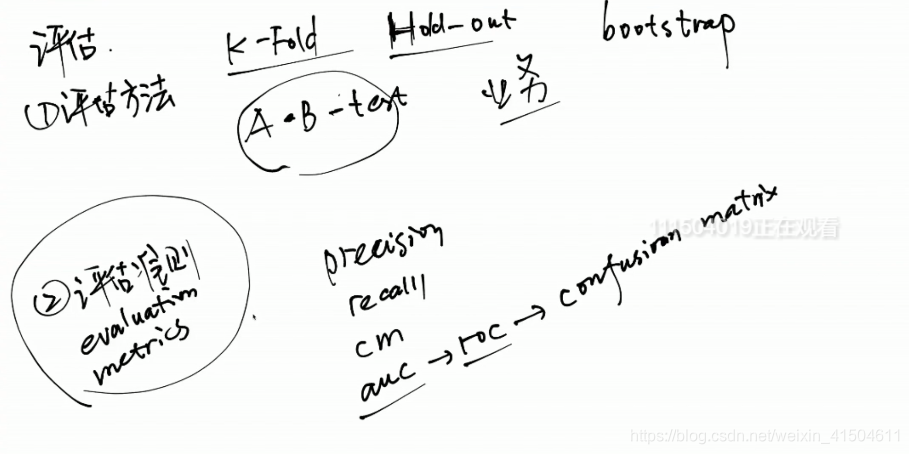 评估. K-Fold Hold-out bootstrap
①评估方法 A·B-test 业务
②评估准则 evaluation metrics
precision
recall
cm
auc → roc → confusion matrix
111504019正在观看
https://blog.csdn.net/weixin_41504611